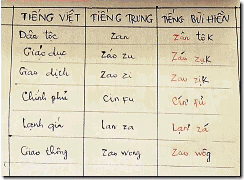 TIẾNG VIỆT TIẾNG TRUNG TIẾNG BÙI HIỀN
Dân tộc Zan zân tộk
Giáo dục Záo zu Záo zụk
Giao dịch Zao zi Zao zịk
Chính phủ Cin fu Cín' fủ
Lạnh giá Lan za Lạn' zá
Giao thông Zao wong Zao wôg